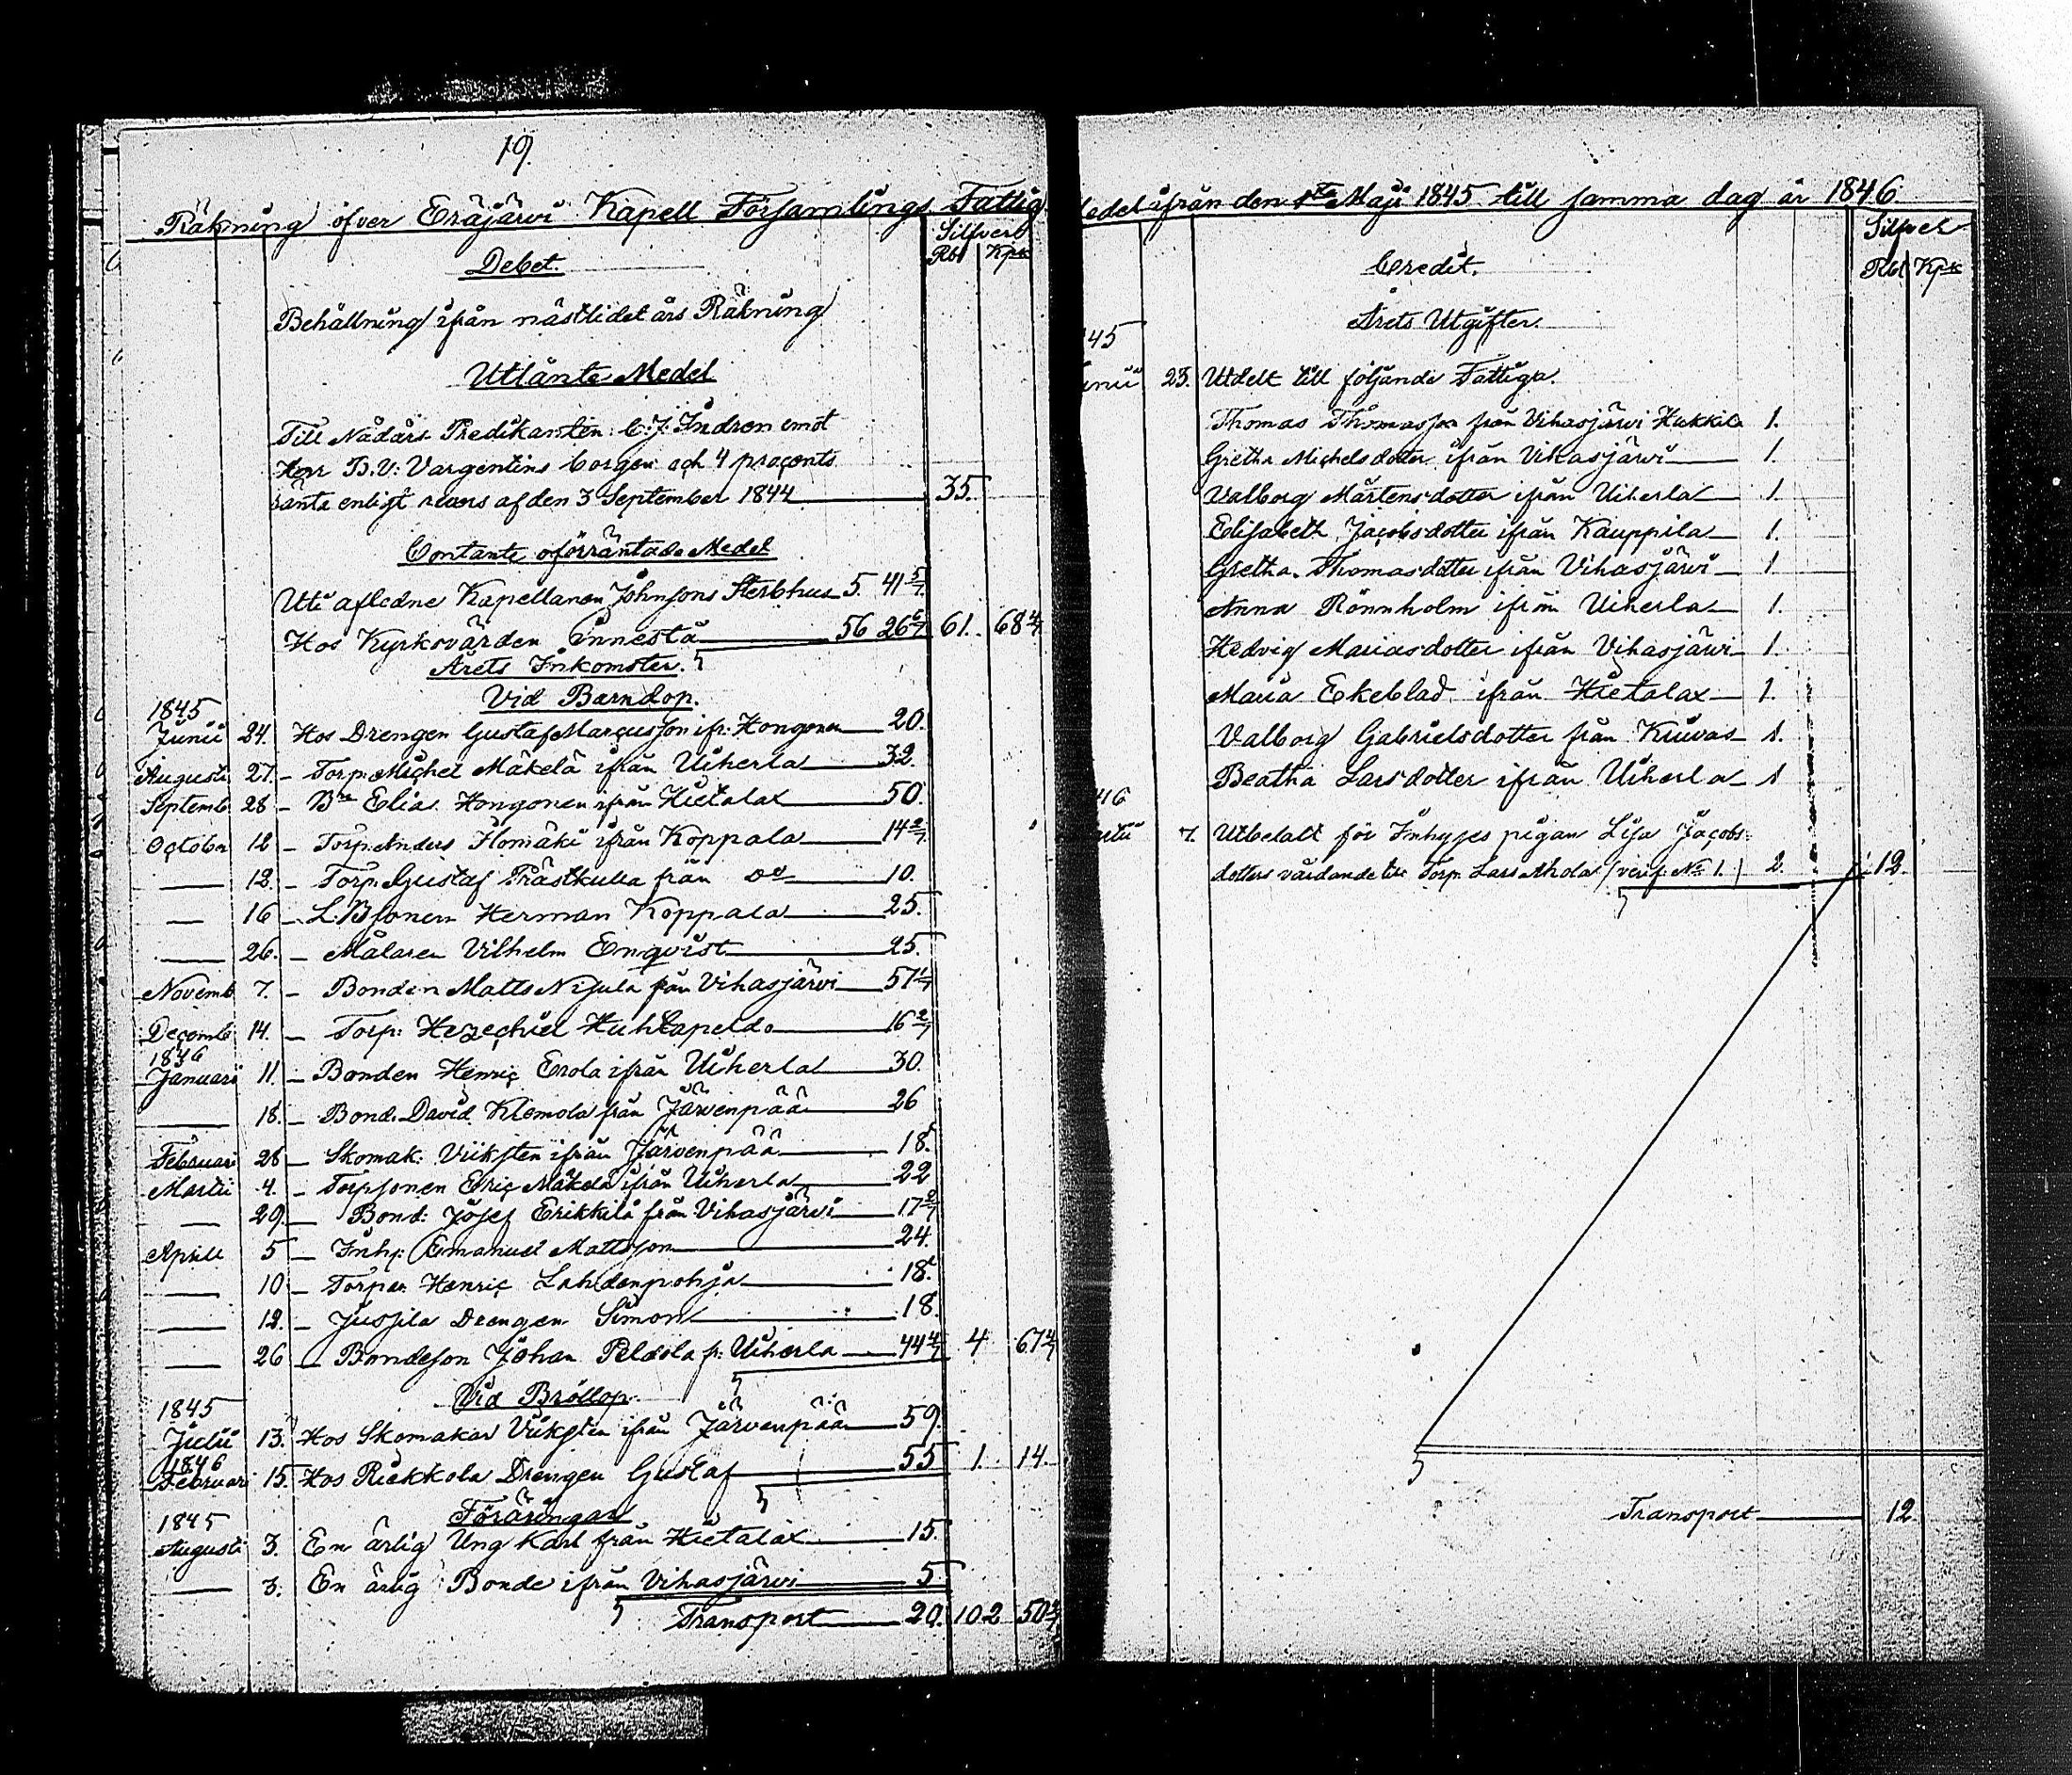 19.
Räkning öfver Eräjärvi Kapell Församlings Fattig
Silfver
Rbl Kpk
Debet.
Behållning ifrån nästlidet års Räkning
Utlånte Medel
Till Nådårs Predikanten C. J. Indren emot
Herr B. V. Vargentins borgen och 4 procents
ränta enligt revers af den 3 September 1844 35.
Contante oförräntade Medel
Uti afledne Kapellanen Johnsons Sterbhus 5. 41 5/7
Hos Kyrkovärden innestå 56 26 6/7 61. 68 4/7
Årets Inkomster.
Vid Barndop.
1845
Junii 24. Hos Drengen Gustaf Marcusson ifr. Hongonen 20.
Augusti 27. – Torp. Michel Mäkelä ifrån Uiherla 32.
Septemb 28 – Bde Elias Hongonen ifrån Hietalax 50.
October 12 – Torp. Anders Ilomäki ifrån Koppala 14 2/7
12. – Torp. Gustaf Trastkulla från do 10.
16 – L. Bsonen Herman Koppala 25.
26. – Målaren Vilhelm Enqvist 25.
Novemb 7. – Bonden Matts Nisula från Vihasjärvi 57 1/7
Decemb 14. – Torp. Hezechiel Huhtapeldo 16 2/7
1846
Januari 11. – Bonden Henric Erola ifrån Uiherla 30.
18. – Bond. David Klemola från Järvenpää 26
Februari 28 – Skomak. Viiksten ifrån Järvenpää 18.
Martii 4. – Torpsonen Eric Mäkelä ifrån Uiherla 22
29. – Bond. Josef Erikkilä från Vihasjärvi 17 2/7
Aprill 5 – Inh. Emanuel Mattsson 24.
10 – Torpar. Henric Lahdenpohja 18.
12. – Jussila Drengen Simon 18.
26 – Bondeson Johan Peldola fr. Uiherla 44 4/7 4 67 4/7
Vid Bröllop.
1845
Julii 13. Hos Skomakar Viiksten ifrån Järvenpää 59.
1846
Februari 15. Hos Riekkola Drengen Gustaf 55 1. 14.
Föräringar
1845
Augusti 3. En ärlig Ung Karl från Hietalax 15.
3. En ärlig Bonde ifrån Vihasjärvi 5
Transport 20. 102 50 2/7
Medel ifrån den 1sta Maji 1845 till samma dag år 1846
Silfver
Rbl Kpk
Credit.
Årets Utgifter.
45
unii 23. Utdelt till följande Fattiga.
Thomas Thomasson från Vihasjärvi Hukkila 1.
Gretha Michelsdotter ifrån Vihasjärvi 1.
Valborg Mårtensdotter ifrån Uiherla 1.
Elisabeth Jacobsdotter ifrån Kauppila 1.
Gretha Thomasdotter ifrån Vihasjärvi 1
Anna Rönnholm ifrån Uiherla 1.
Hedvig Mariasdotter ifrån Vihasjärvi 1.
Maria Ekeblad ifrån Hietalax 1.
Valborg Gabrielsdotter från Kuivas 1.
Beatha Larsdotter ifrån Uiherla 1
46
artii 7. Utbetalt för Inhyses pigan Lisa Jacobs-
dotters vårdande till Torp. Lars Ahola (verif. No 1.) 2. 12.
Transport 12